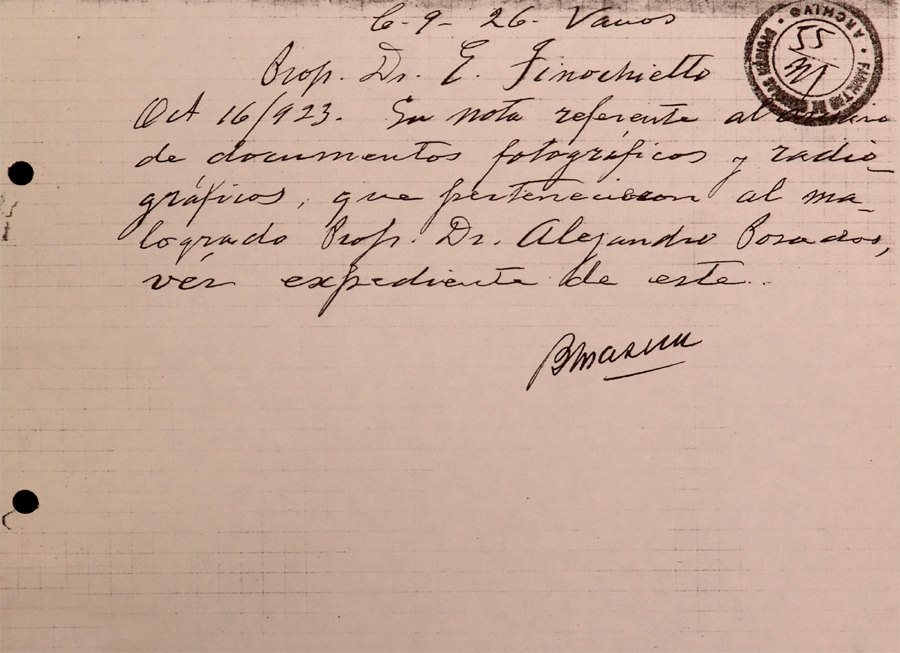 C-9-26- Varios
Prof. Dr. E. Finochietto
Oct 16/923. Su nota referente al
de documentos fotográficos y radio-
gráficos, que pertenecieron al ma-
logrado Prof. Dr. Alejandro Posadas,
vér expediente de este.
ARCHIVO
FACULTAD DE CIENCIAS MÉDICAS
55